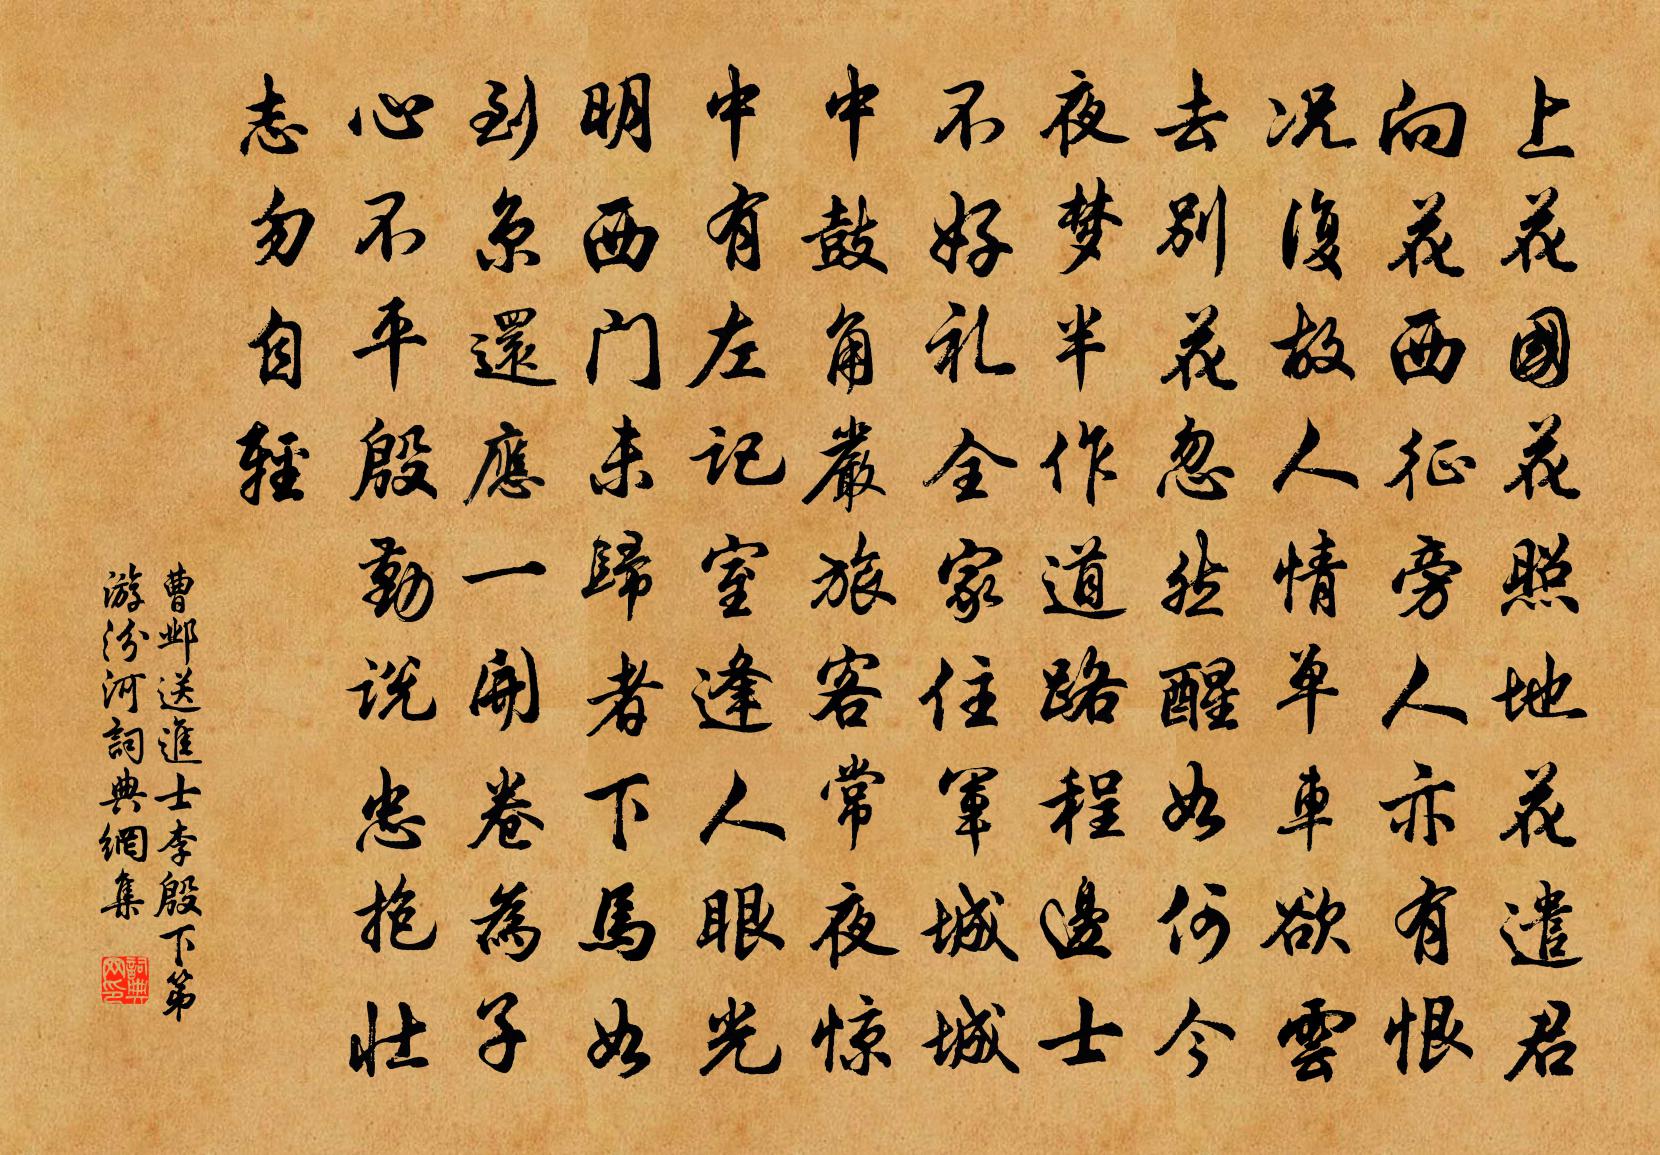 上花國花照地花遣君
向花西征旁人亦有恨
况復故人情单車欲雲
去别花忽然醒如何今
夜梦半作道路程邊士
不好礼全家住軍城城
中鼓角嚴旅客常夜惊
中有左记室逢人眼光
明西门未歸者下馬如
到京還應一開卷為子
心不平殷勤说忠抱壮
志勿自輕
曹邺送進士李殷下第
游汾河詞典網集
詞典网印